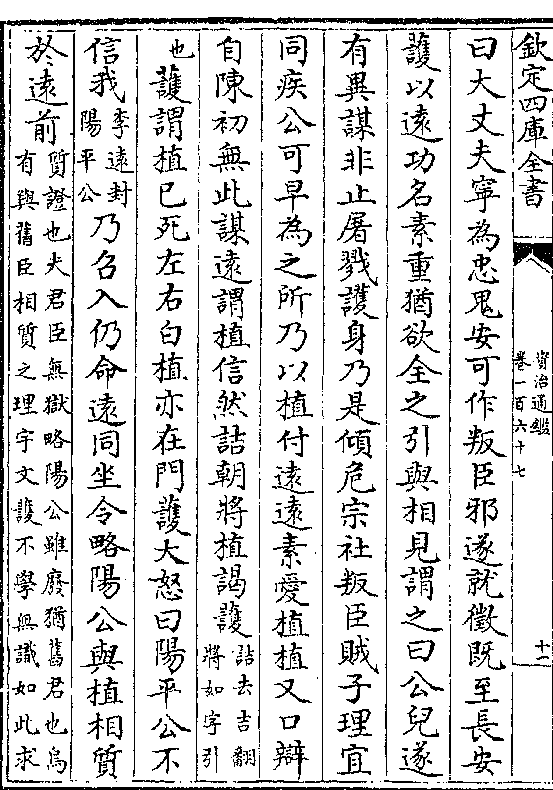 欽定四庫全書
資治通鑑
卷一百六十七
十一
曰大丈夫寧為忠鬼安可作叛臣邪遂就徵既至長安
護以遠功名素重猶欲全之引與相見謂之曰公兒遂
有異謀非止屠戮護身乃是傾危宗社叛臣賊子理宜
同疾公可早為之所乃以植付遠遠素愛植植又口辯
自陳初無此謀遠謂植信然詰朝將植謁護詰去吉翻
將如字引
也護謂植已死左右白植亦在門護大怒曰陽平公不
信我李遠封
陽平公乃召入仍命遠同坐令略陽公與植相質
於遠前質證也夫君臣無獄略陽公雖廢猶舊君也烏
有與舊臣相質之理宇文護不學無識如此求